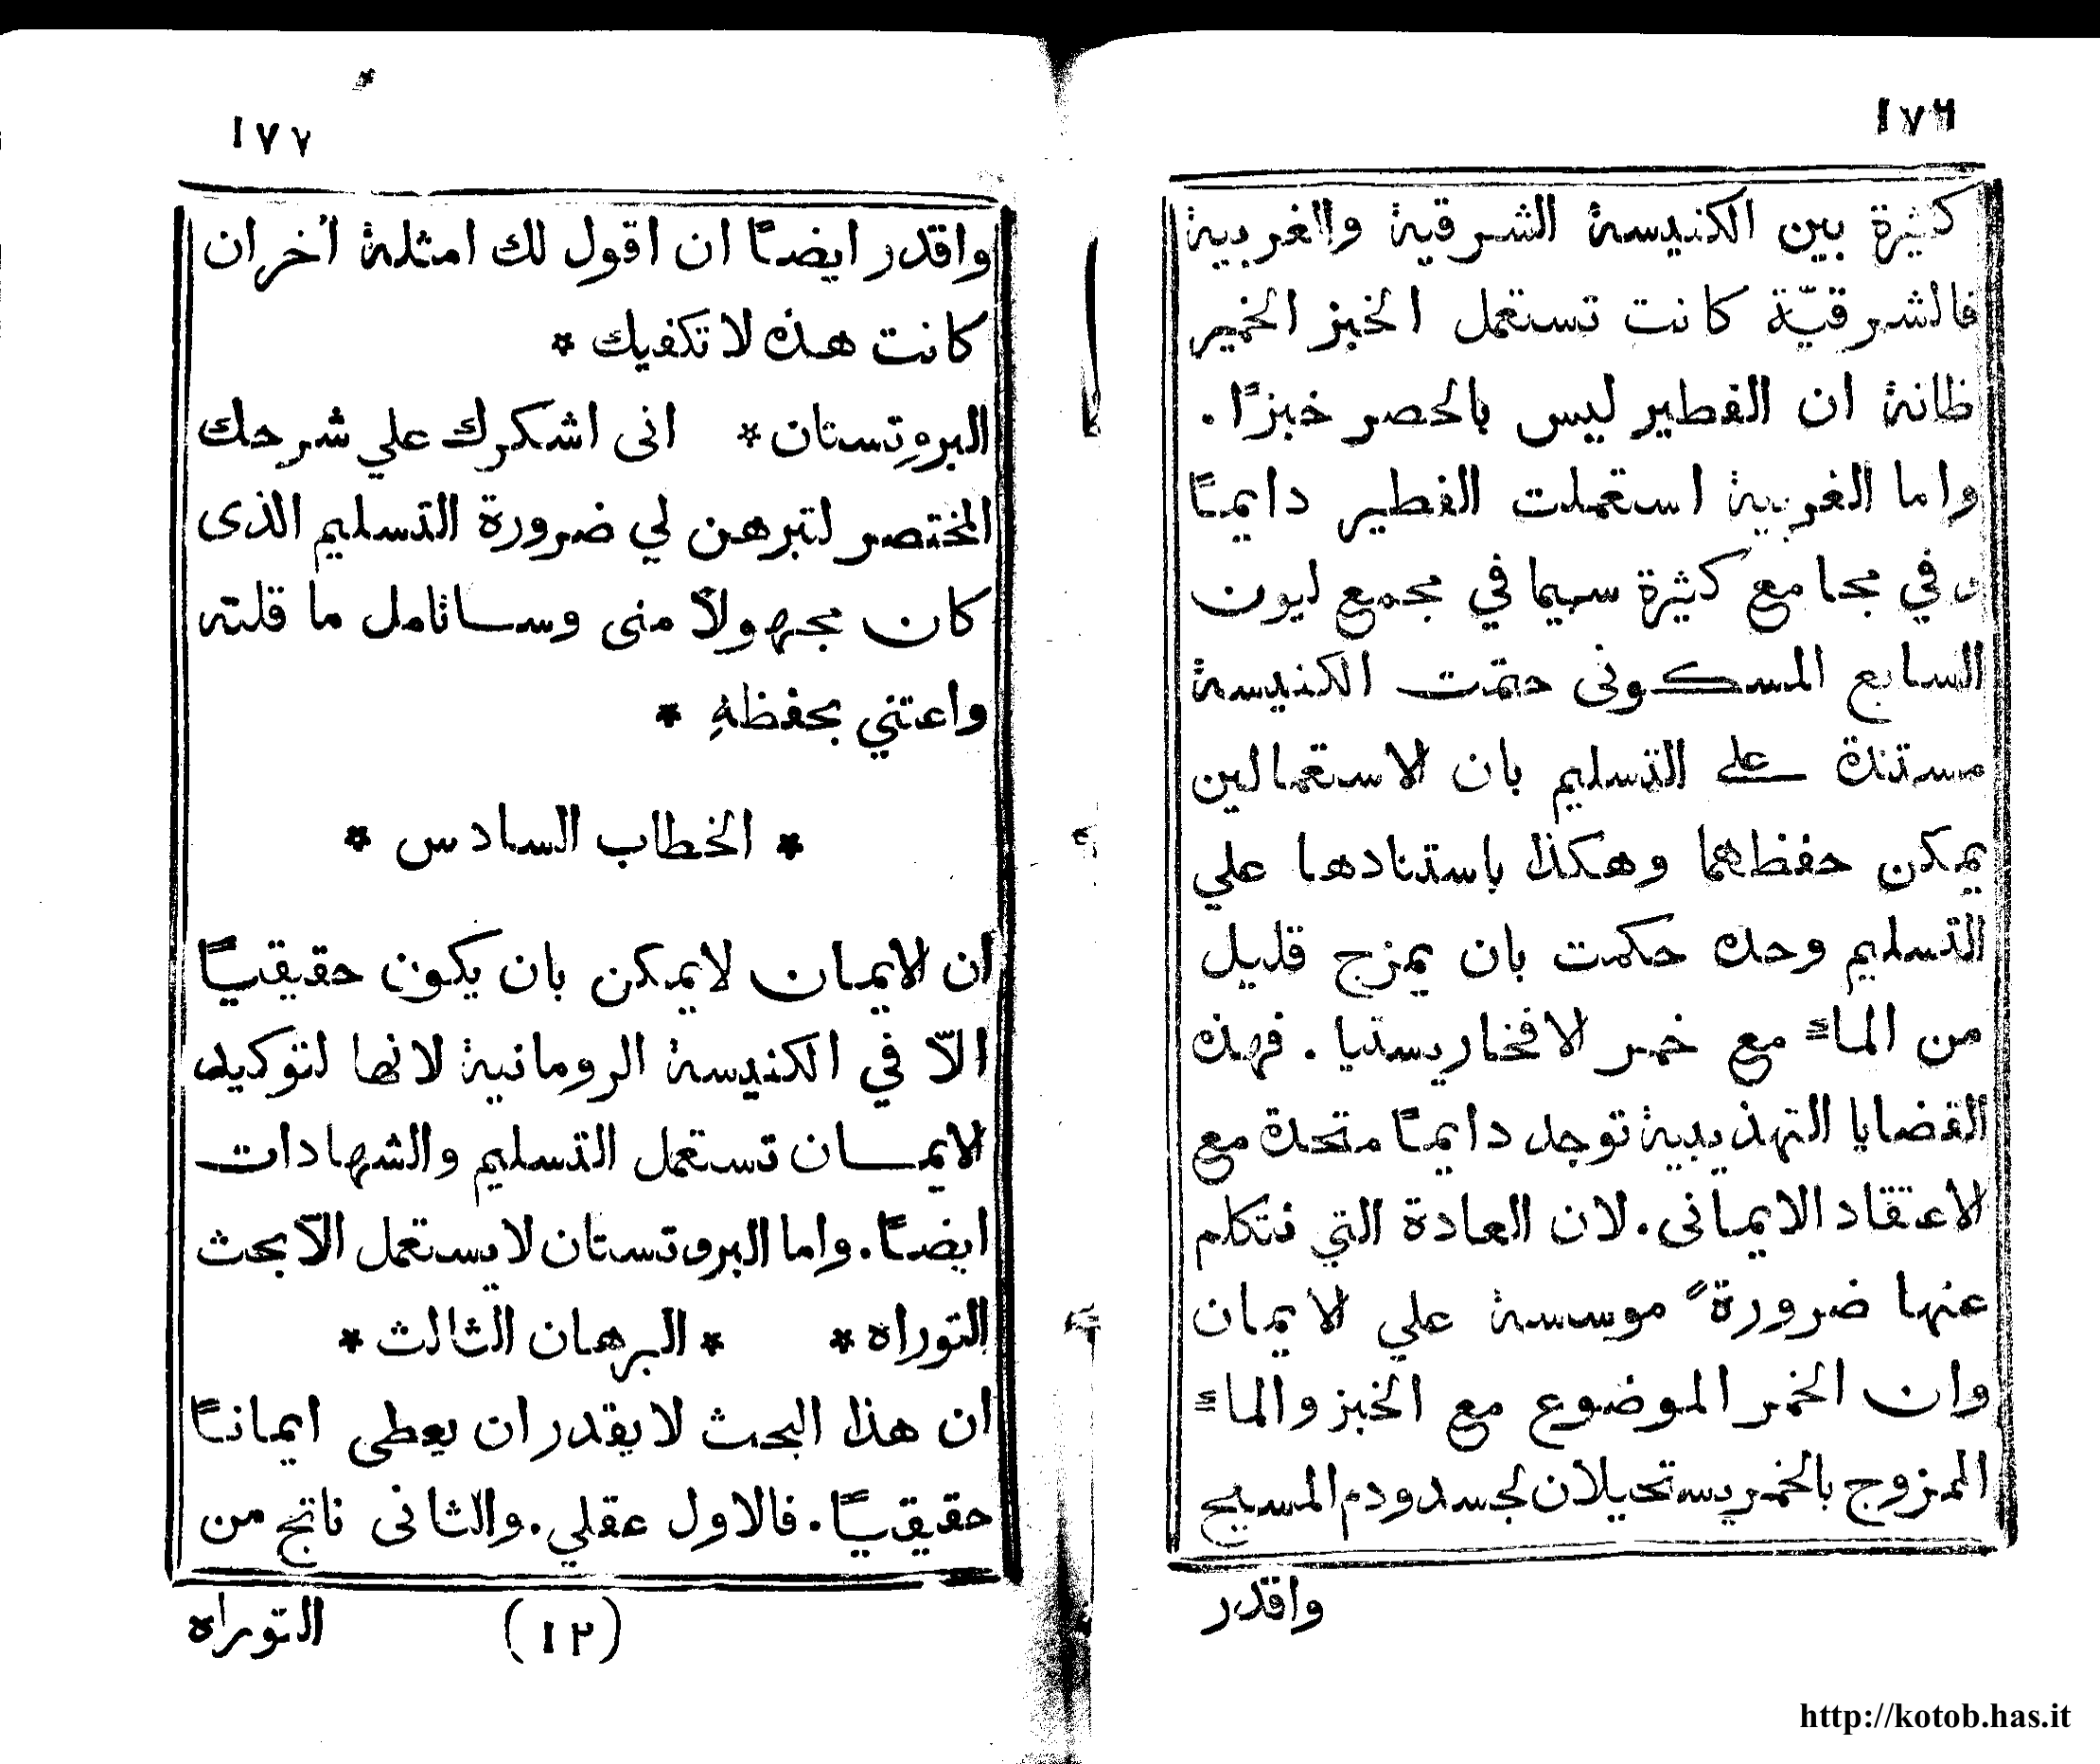 ١٧٦
كثيرة بين الكنيسة الشرقية والغربية
فالشرقيّة كانت تستعمل الخبز الخمير
ظانة ان الفطير ليس بالحصر خبزًا .
واما الغربية استعملت الفطير دايمًا
وفي مجامع كثيرة سيما في مجمع ليون
السابع المسكونى حتمت الكنيسة
مستندة على التسليم بان الاستعمالين
يمكن حفظهما وهكذا باستنادها علي
التسليم وحده حكمت بان يمزج قليل
من الماء مع خمر الافخاريستيا . فهذه
القضايا التهذيبية توجد دايمًا متحدة مع
الاعتقاد الايمانى . لان العادة التي نتكلم
عنها ضرورةً موسسة علي الايمان
وان الخمر الموضوع مع الخبز والماء
الممزوج بالخمر يستحيلان لجسد ودم المسيح
واقدر
١٧٧
واقدر ايضًا ان اقول لك امثلة أخر ان
كانت هذه لا تكفيك *
البروتستان * انى اشكرك علي شرحك
المختصر لتبرهن لي ضرورة التسليم الذى
كان مجهولاً منى وساتامل ما قلته
واعتني بحفظهِ *
* الخطاب السادس *
ان الايمان لايمكن بان يكون حقيقيًا
الاّ في الكنيسة الرومانية لانها لتوكيد
الايمان تستعمل التسليم والشهادات
ايضًا . واما البروتستان لا يستعمل الاّ بحث
التوراه * * البرهان الثالث *
ان هذا البحث لا يقدر ان يعطى ايمانًا
حقيقيًا . فالاول عقلي . والثانى ناتج من
(١٢) التوراه
http://kotob.has.it